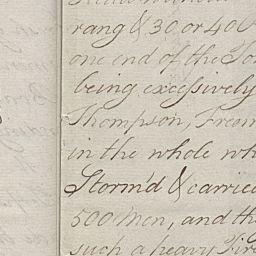 rang & 30 or 40
one end of the
being excessively
Thompson, Free
in the whole wh
Storm'd & carrie
500 Men, and th
such a heavy Fire